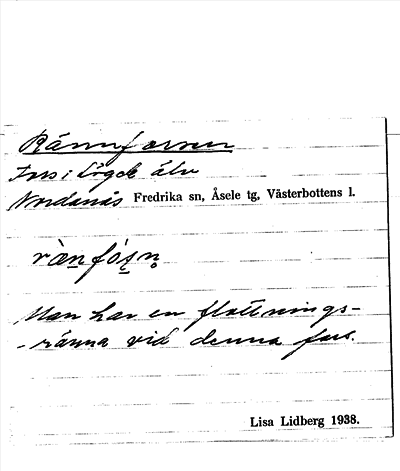 Rännforsen
Fors i Lögde älv
Nordanås Fredrika sn, Åsele tg, Västerbottens l.
rä̀nfó̱ṣn̥
Man har en flottnings-
-ränna vid denna fors.
Lisa Lidberg 1938.